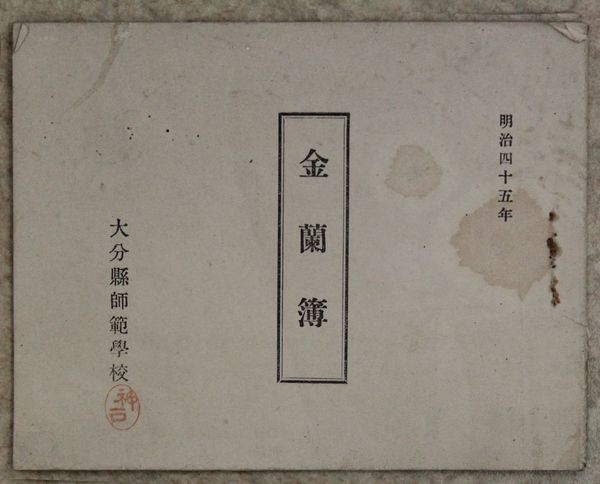 明治四十五年
金蘭簿
大分縣師範學校
神戸